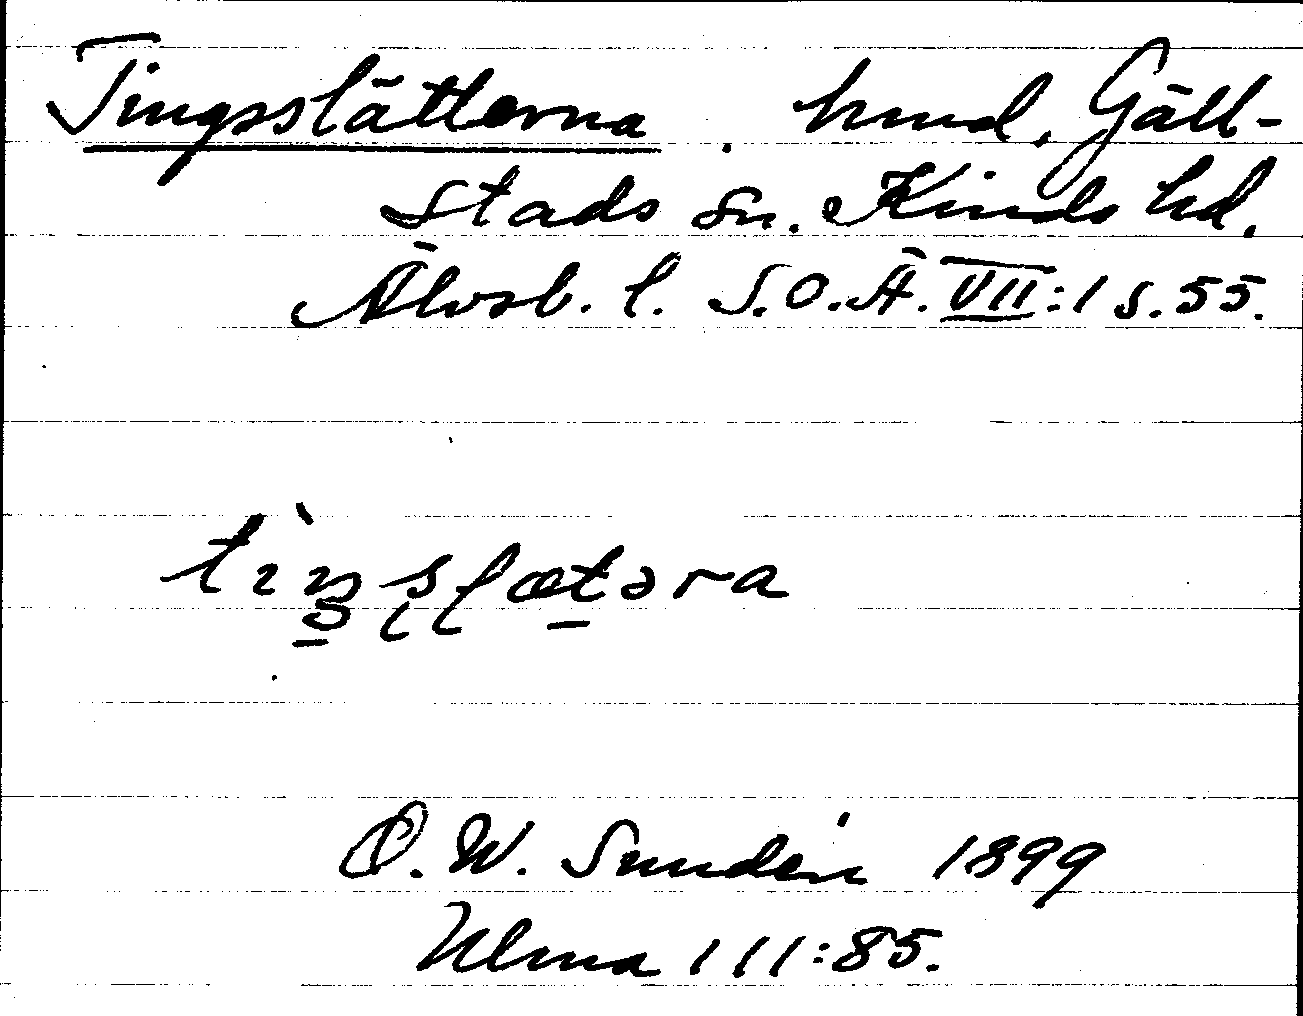 Tingsslätterna. hmd, Gäll-
stads sn. Kinds hd.
Älvsb. l. S.O.Ä. VII:1 s.55.
O.W. Sundén 1899
Ulma 111:85.